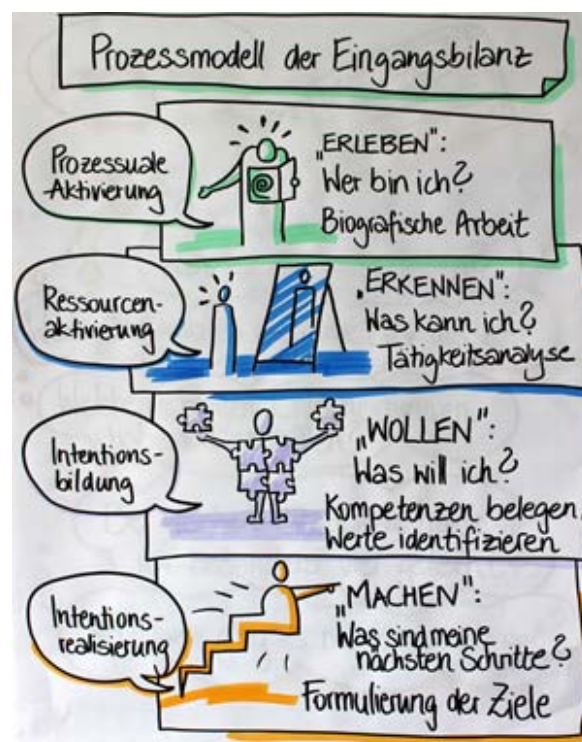 Prozessmodell der Eingangsbilanz
Prozessuale
-Aktivierung
„ERLEBEN":
Wer bin ich?
Biografische Arbeit
Ressourcen-
aktivierung
„ERKENNEN":
Was kann ich?
Tätigkeitsanalyse
Intentions-
bildung
„WOLLEN":
Was will ich?
Kompetenzen belegen,
Werte identifizieren
Intentions-
realisierung
„MACHEN":
Was sind meine
nächsten Schritte?
Formulierung der Ziele